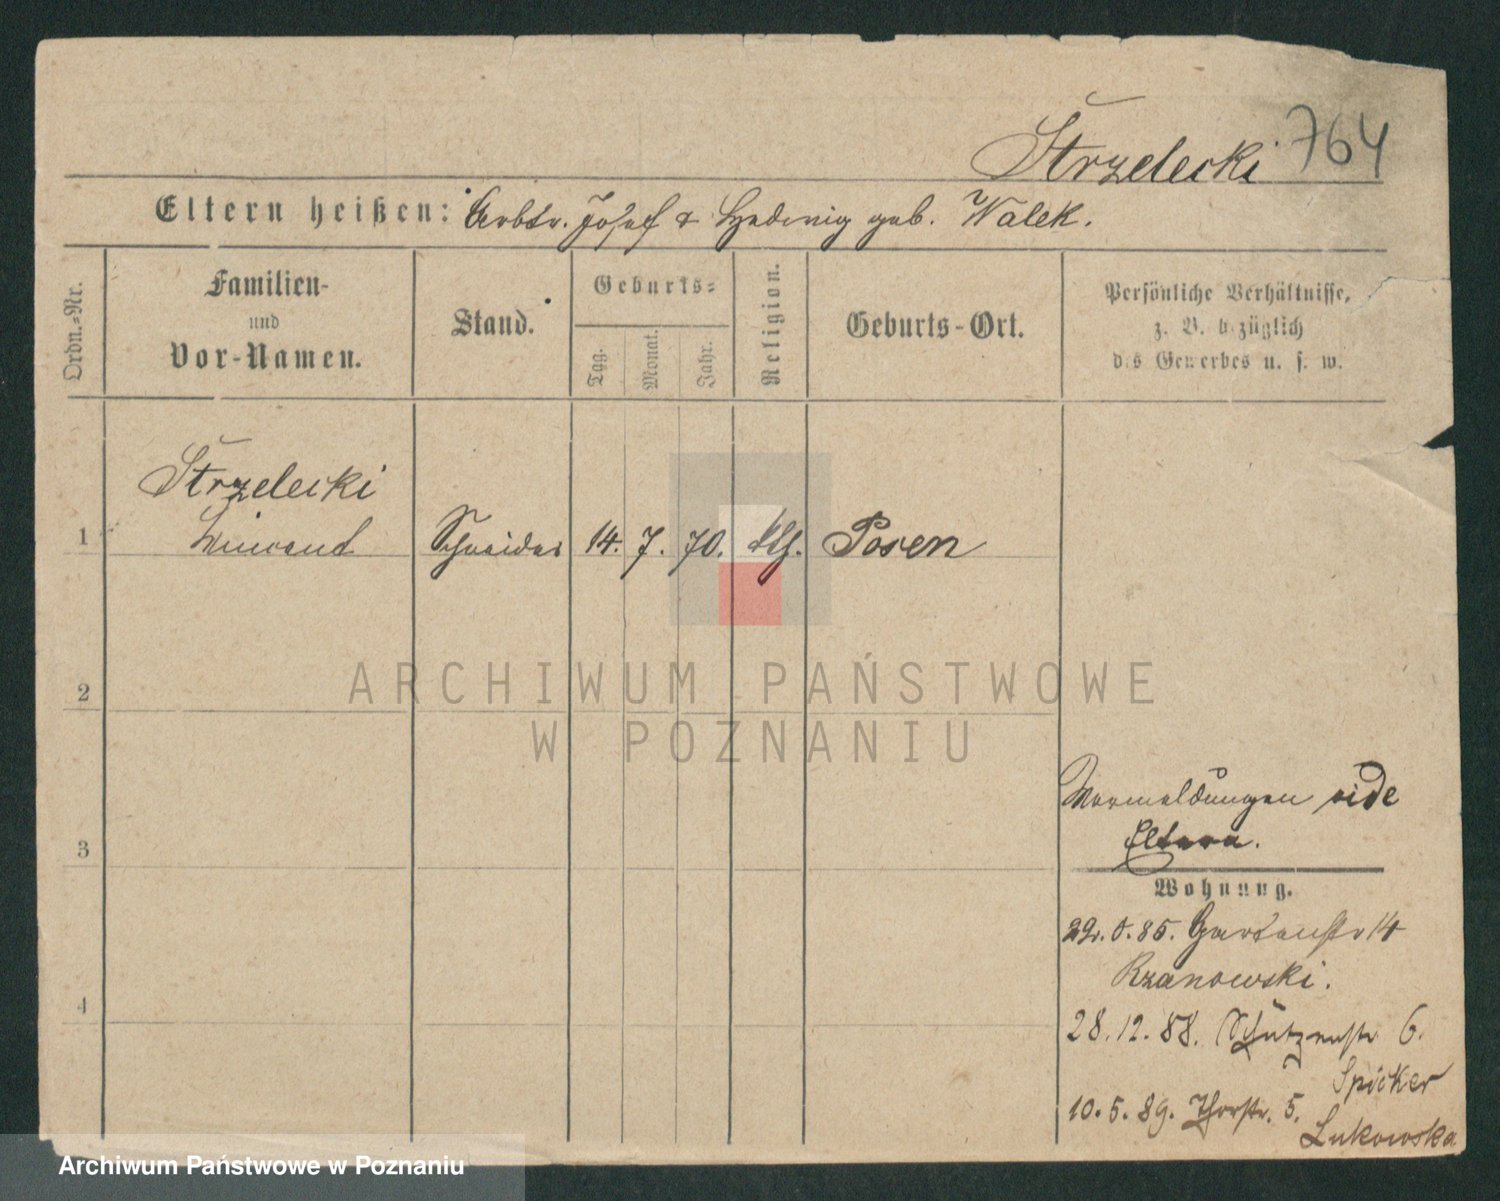 Strzelecki 764
Eltern heißen: Arbtr. Josef & Hedwig geb. Walek.
Ordn.-Nr.
Familien-
und
Vor-Namen.
Stand.
Geburts-
Tag.
Monat.
Jahr.
Religion.
Geburts-Ort.
Persönliche Verhältnisse,
z. B. bezüglich
des Gewerbes u. s. w.
Strzelecki
1 Vincent Schneider 14. 7. 70. kth. Posen
2
3
4
Vormeldungen vide
Eltern.
Wohnung.
85. Gartenstr 14
Rzanowski.
28. 12. 88. Schützenstr 6.
Spicker
10. 5. 89. Thorstr. 5.
Lukowska
ARCHIWUM PAŃSTWOWE
W POZNANIU
Archiwum Państwowe w Poznaniu